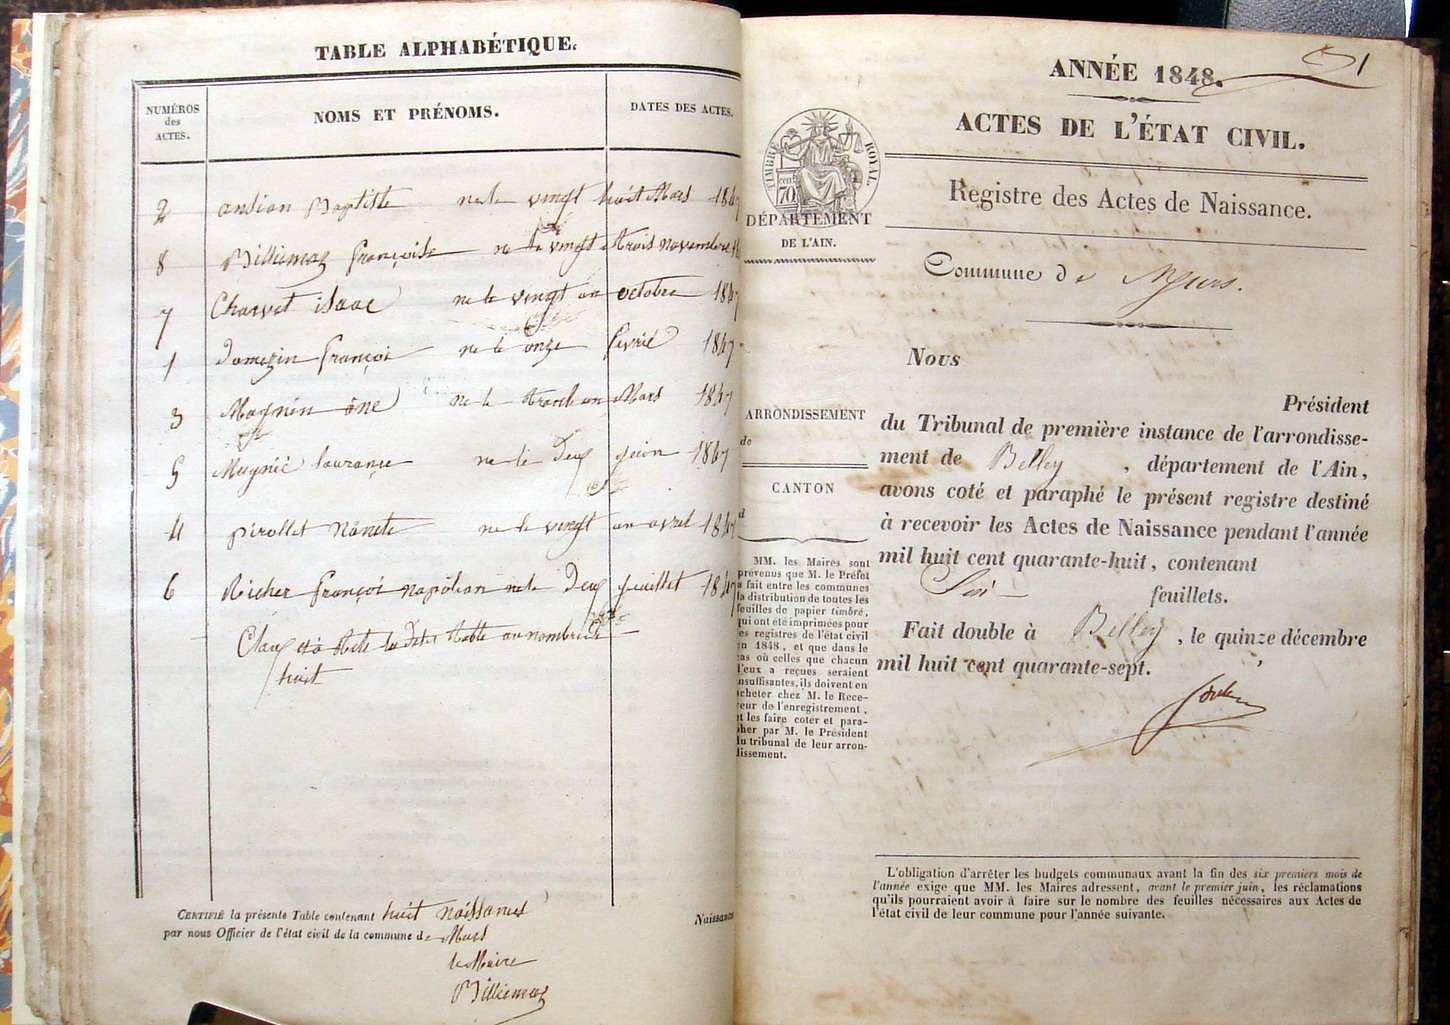 TABLE ALPHABÉTIQUE.
NUMÉROS
des
ACTES.
NOMS ET PRÉNOMS.
DATES DES ACTES.
2 ansian Baptiste ne le vingt huit Mars 1847
8 Billiemaz françoise ne le vingt trois novembre
7 Charvet isaac ne le vingt un octobre 1847
1 françoi ne le onze fevrié 1847
3 Magnin ne le Mars 1847
5 Mugnié ne le Deux juin 1847
4 pirollet ne le vingt un avril 1847
6 Richer françoi napoleon ne le Deux juillet 1847
table au nombre de
huit
CERTIFIÉ la présente Table contenant huit naissances Naissances
par nous Officier de l'état civil de la commune de
le Maire
Billiemaz
1
ANNÉE 1848.
ACTES DE L'ÉTAT CIVIL.
TIMBRE ROYAL.
70
DÉPARTEMENT
DE L'AIN.
Registre des Actes de Naissance.
Commune de
ARRONDISSEMENT
de
CANTON
d
MM. les Maires sont
prévenus que M. le Préfet
a fait entre les communes
la distribution de toutes les
feuilles de papier timbré,
qui ont été imprimées pour
les registres de l'état civil
en 1848, et que dans le
cas où celles que chacun
d'eux a reçues seraient
insuffisantes, ils doivent en
acheter chez M. le Rece-
veur de l'enregistrement,
et les faire coter et para-
pher par M. le Président
du tribunal de leur arron-
dissement.
Nous
Président
du Tribunal de première instance de l'arrondisse-
ment de Belley, département de l'Ain,
avons coté et paraphé le présent registre destiné
à recevoir les Actes de Naissance pendant l'année
mil huit cent quarante-huit, contenant
Six feuillets.
Fait double à Belley, le quinze décembre
mil huit cent quarante-sept.
L'obligation d'arrêter les budgets communaux avant la fin des six premiers mois de
l'année exige que MM. les Maires adressent, avant le premier juin, les réclamations
qu'ils pourraient avoir à faire sur le nombre des feuilles nécessaires aux Actes de
l'état civil de leur commune pour l'année suivante.